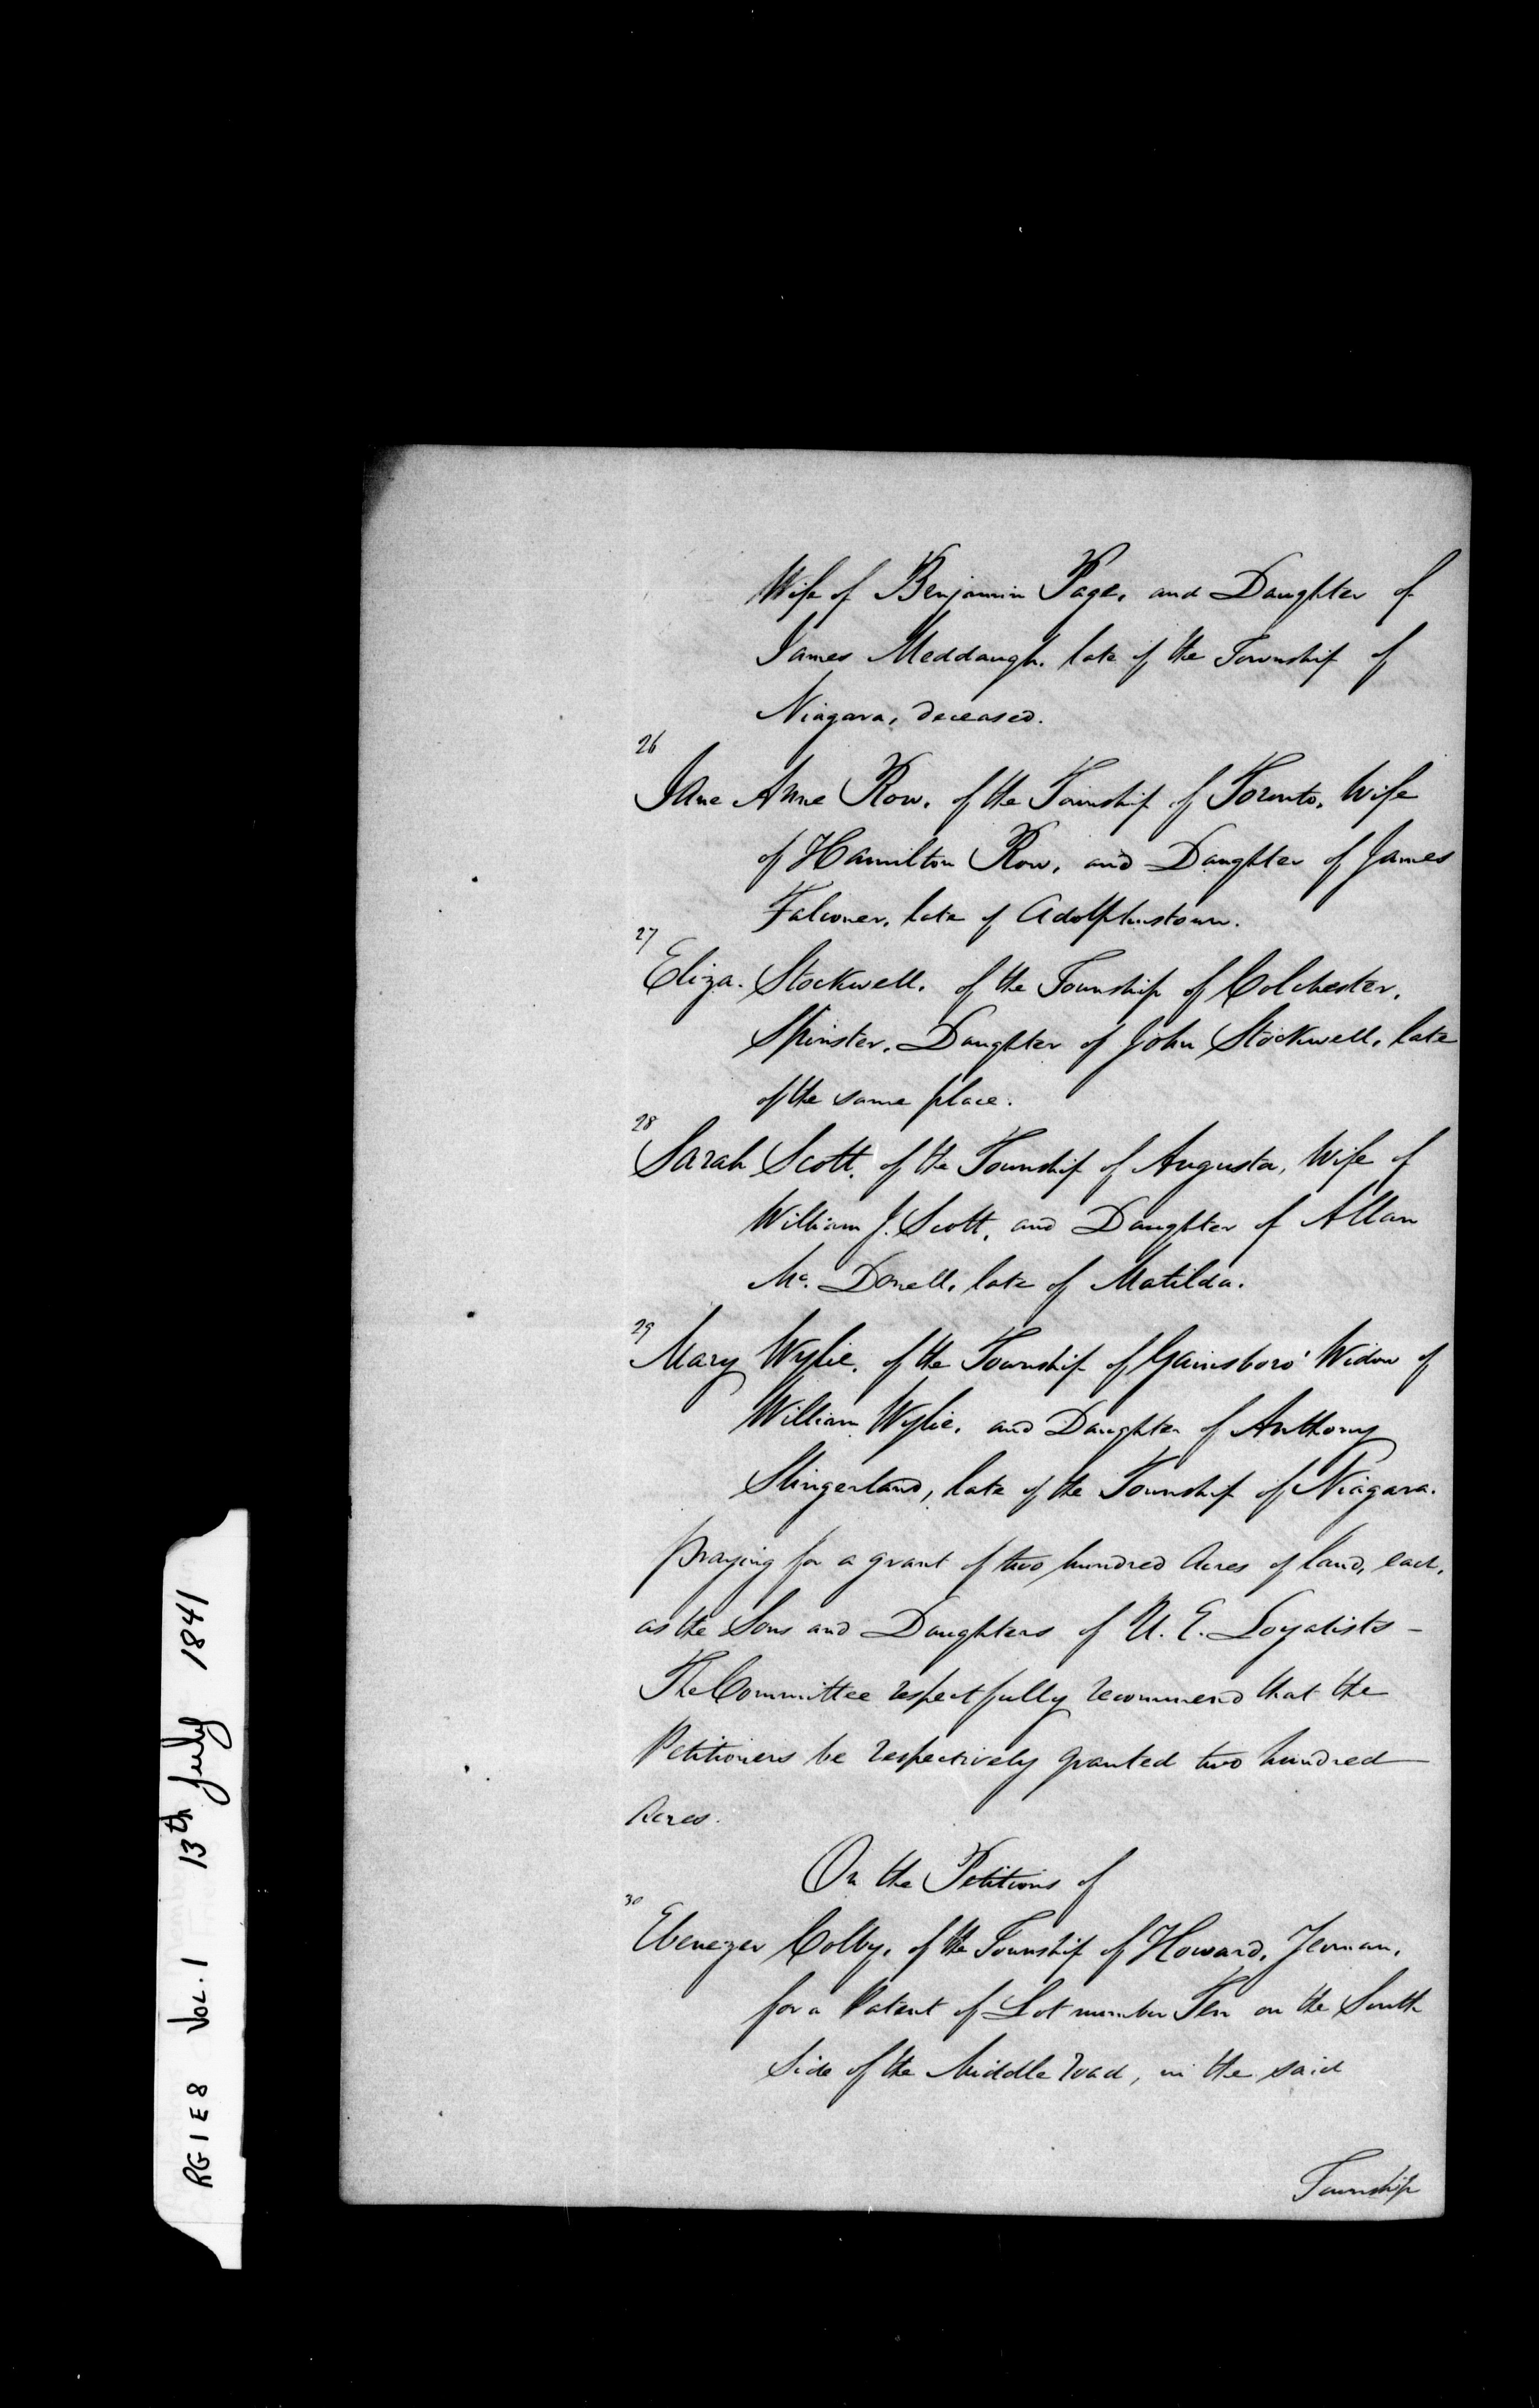 Wife of Benjamin Page, and Daughter of
James Meddaugh, late of the Township of
Niagara, deceased.
26
Jane Anne Row, of the Township of Toronto, Wife
of Hamilton Row, and Daughter of James
Falconer, late of Adolphustown.
27
Eliza. Stockwell, of the Township of Colchester,
Spinster, Daughter of John Stockwell, late
of the same place.
28
Sarah Scott, of the Township of Augusta, Wife of
William J. Scott, and Daughter of Allan
Mc. Donell, late of Matilda.
29
Mary Wylie, of the Township of Gainsboro' Widow of
William Wylie, and Daughter of Anthony
Slingerland, late of the Township of Niagara.
praying for a grant of two hundred Acres of land, each,
as the Sons and Daughters of U. E. Loyalists -
The Committee respectfully recommend that the
Petitioners be respectively granted two hundred
Acres.
On the Petitions of
30
Ebenezer Colby, of the Township of Howard, Yeoman,
for a Patent of Lot number Ten on the South
Side of the Middle road, in the said
Township
RG 1 E 8 Vol. 1 13th July 1841